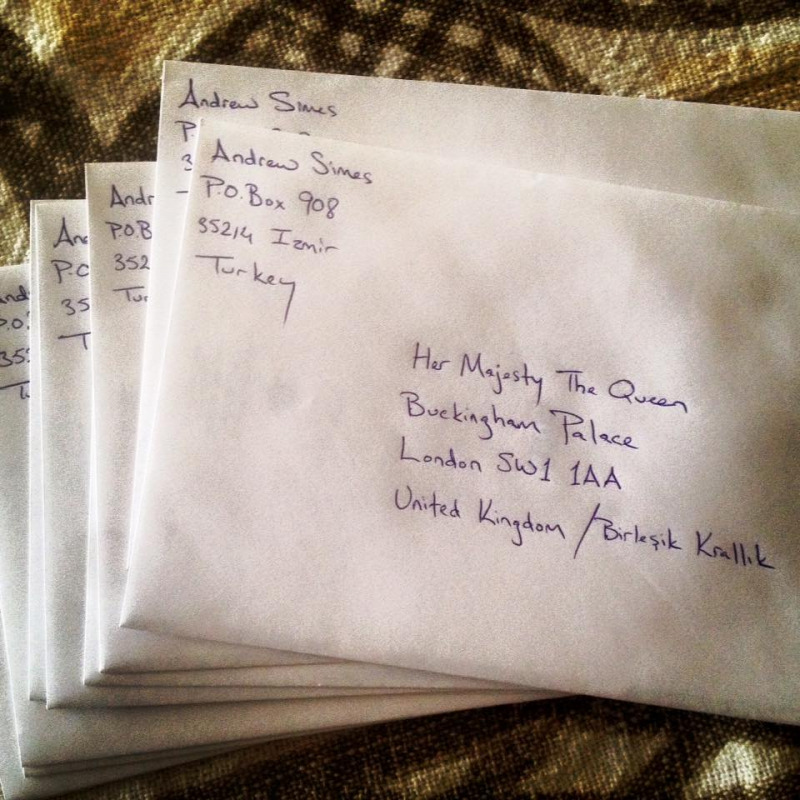 Andrew Simes
P.
3
Andrew Simes
P.O.Box 908
35214 Izmir
Turkey
Her Majesty The Queen
Buckingham Palace
London SW1 1AA
United Kingdom / Birleşik Krallık
Andr
P.O.B
352
Tur
An
P.O
35
T
And
P.O.
35
T